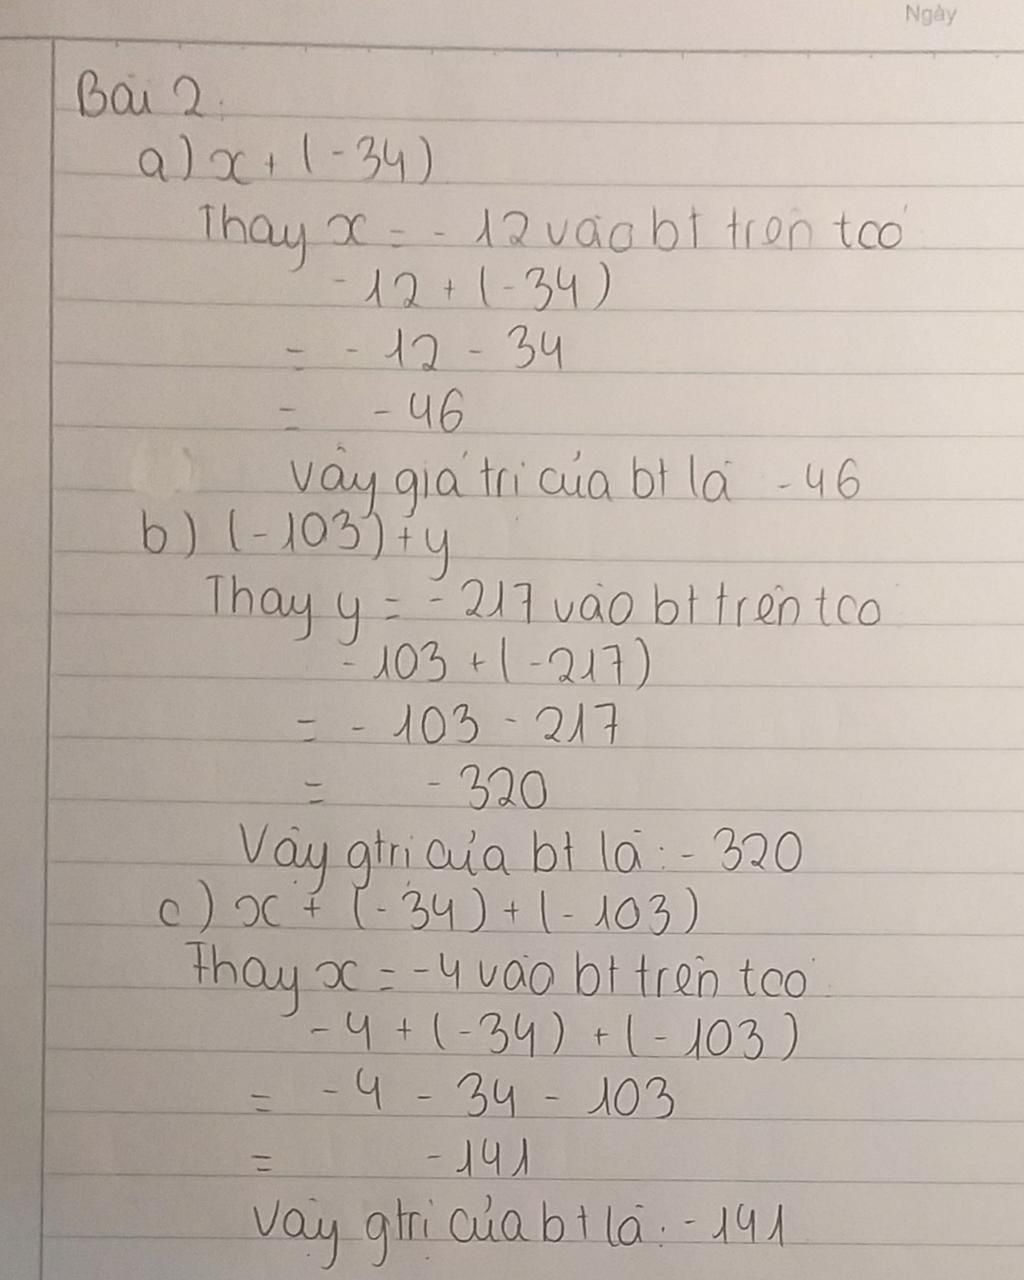 Ngày
Bài 2.
a) x + (-34)
Thay x = - 12 vào bt trên tcó
- 12 + (-34)
= - 12 - 34
= - 46
vậy giá trị của bt là - 46
b) (-103) + y
Thay y = - 217 vào bt trên tcó
- 103 + (-217)
= - 103 - 217
= - 320
Vậy gtrị của bt là : - 320
c) x + (-34) + (-103)
Thay x = -4 vào bt trên tcó
- 4 + (-34) + (-103)
= - 4 - 34 - 103
= - 141
vậy gtrị của bt là : - 141